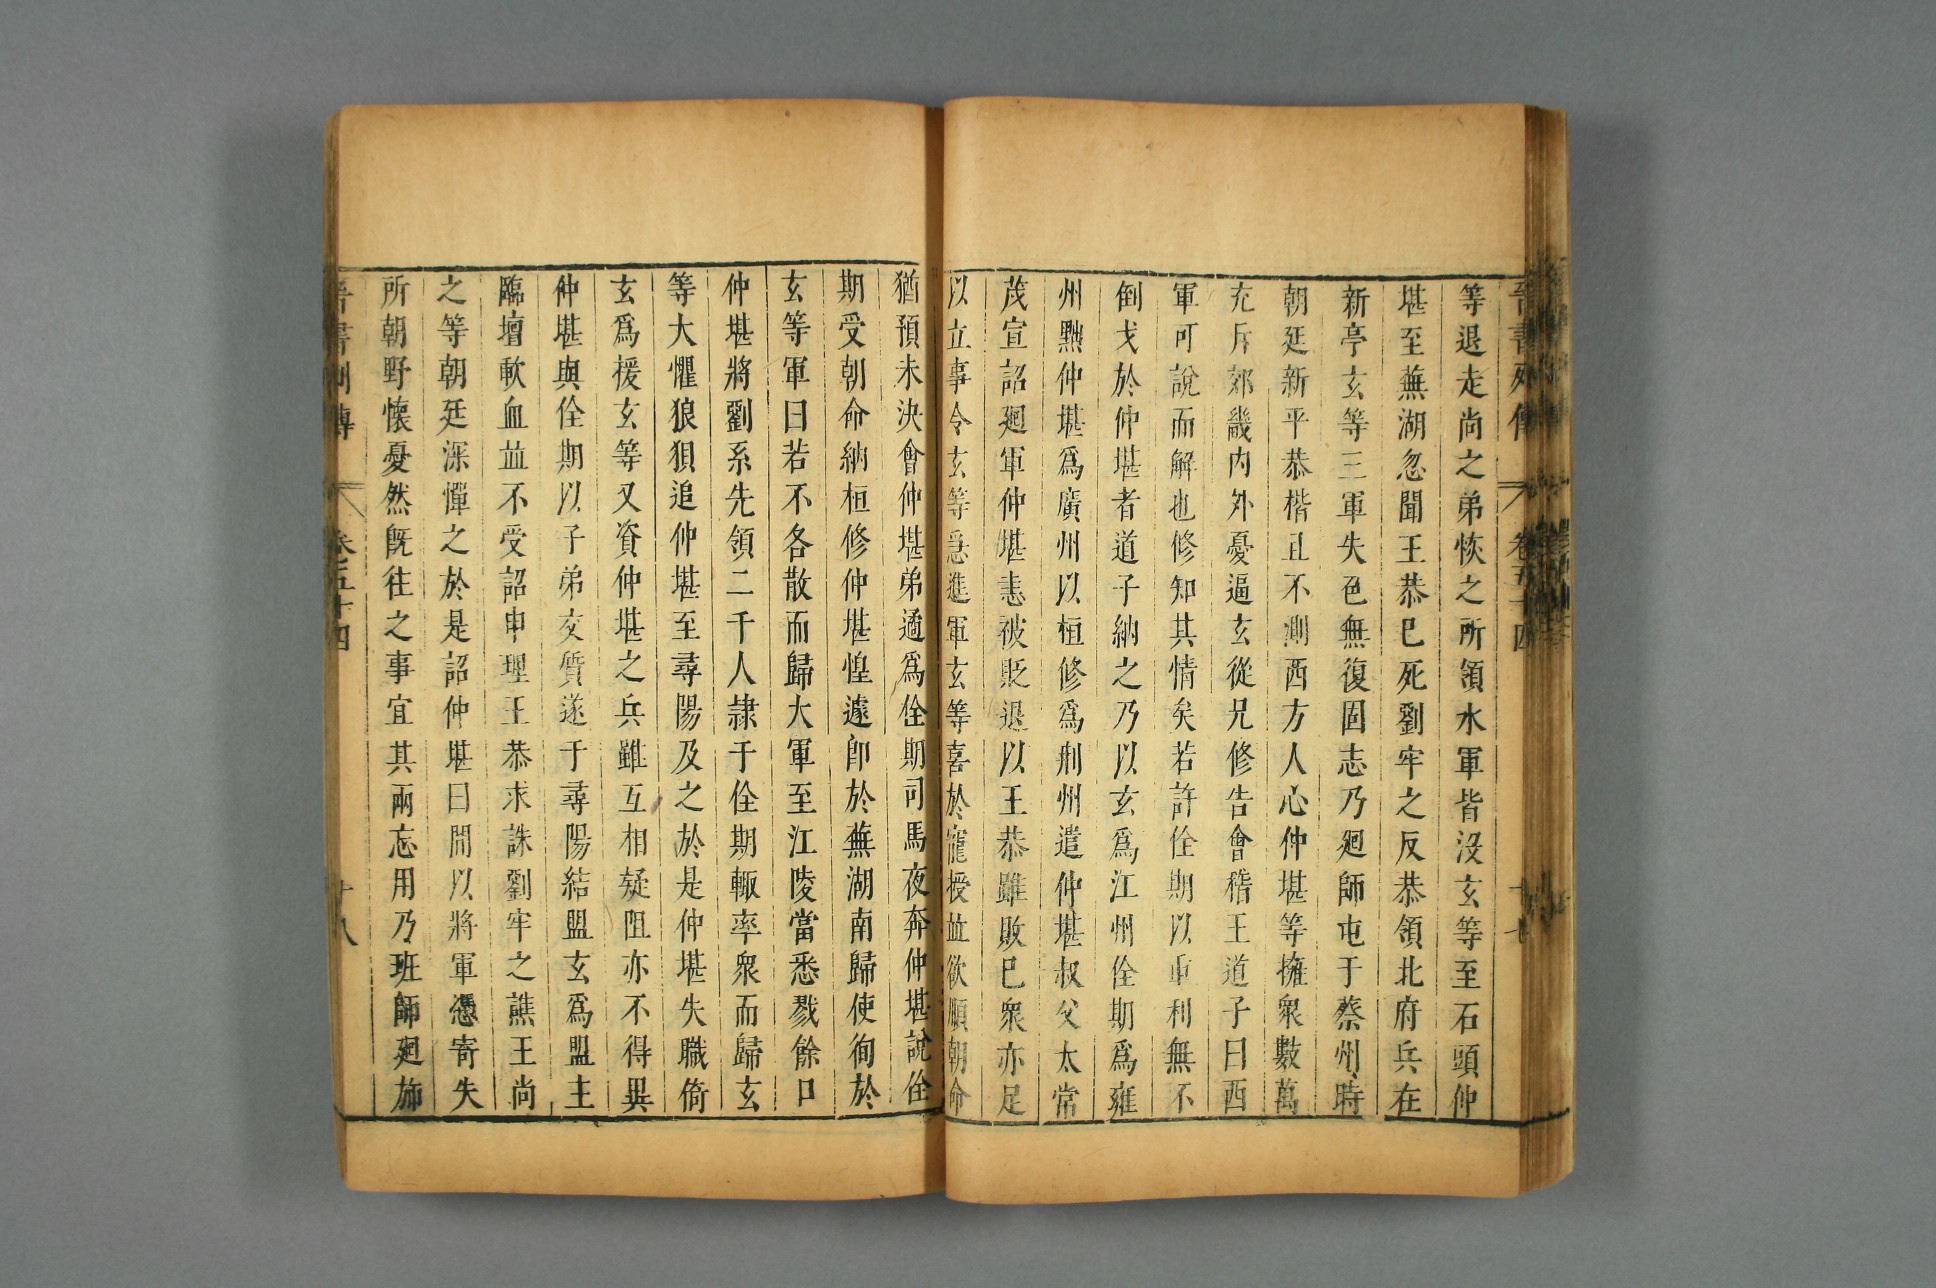 晉書列傳 卷五十四 十七
等退走尚之弟恢之所領水軍皆沒玄等至石頭仲
堪至蕪湖忽聞王恭已死劉牢之反恭領北府兵在
新亭玄等三軍失色無復固志乃廻師屯于蔡州時
朝廷新平恭楷且不測西方人心仲堪等擁衆數萬
充斥郊畿内外憂逼玄從兄修告會稽王道子曰西
軍可說而解也修知其情矣若許佺期以重利無不
倒戈於仲堪者道子納之乃以玄爲江州佺期爲雍
州黜仲堪爲廣州以桓修爲荆州遣仲堪叔父太常
茂宣詔廻軍仲堪恚被貶退以王恭雖敗已衆亦足
以立事令玄等急進軍玄等喜於寵授並欲順朝命
猶預未決會仲堪弟遹爲佺期司馬夜奔仲堪說佺
期受朝命納桓修仲堪惶遽卽於蕪湖南歸使徇於
玄等軍曰若不各散而歸大軍至江陵當悉戮餘口
仲堪將劉系先領二千人隷于佺期輙率衆而歸玄
等大懼狼狽追仲堪至尋陽及之於是仲堪失職倚
玄爲援玄等又資仲堪之兵雖互相疑阻亦不得異
仲堪與佺期以子弟交質遂于尋陽結盟玄爲盟主
臨壇歃血並不受詔申理王恭求誅劉牢之譙王尚
之等朝廷深憚之於是詔仲堪曰閒以將軍憑寄失
所朝野懷憂然旣往之事宜其兩忘用乃班師廻旆
晉書列傳 卷五十四 十八